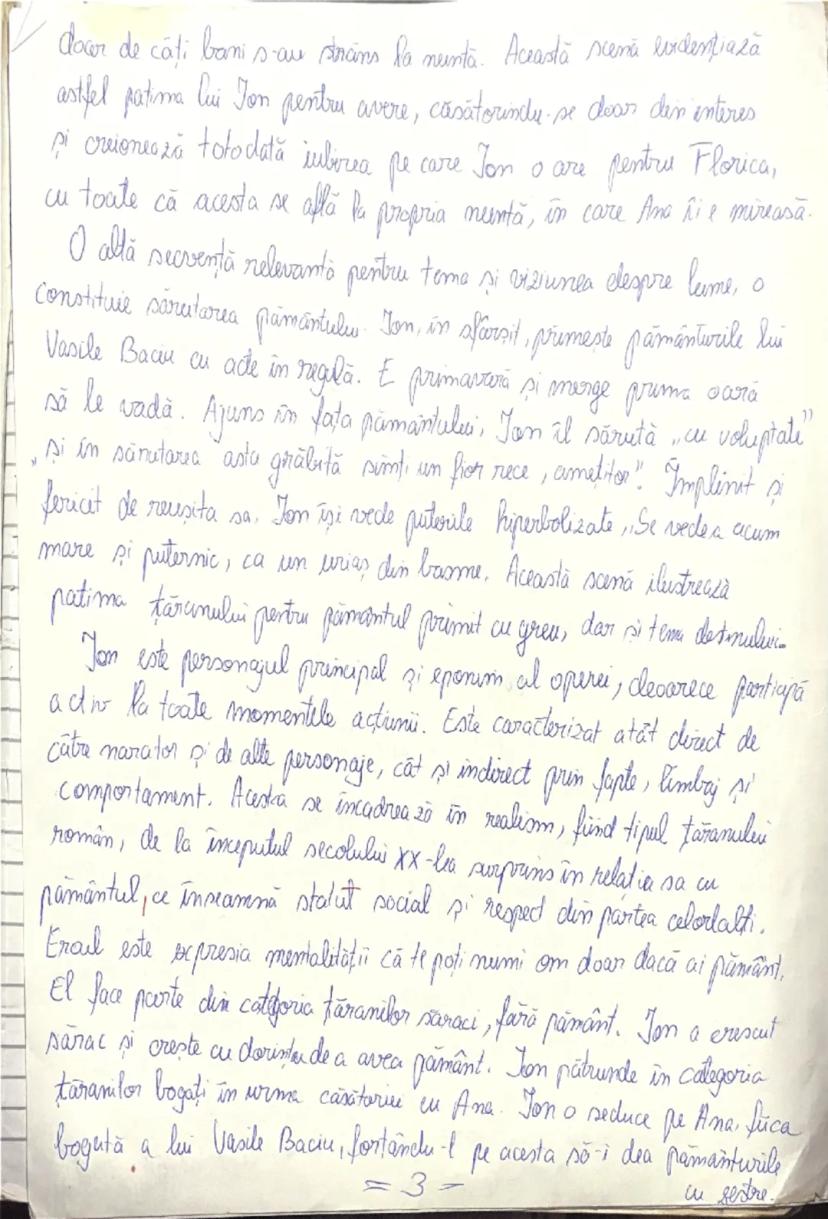 doar de câți bani s-au strâns la nuntă. Această scenă evidențiază
astfel patima lui Ion pentru avere, căsătorindu-se doar din interes
și creionează totodată iubirea pe care Ion o are pentru Florica,
cu toate că acesta se află la propria nuntă, în care Ana îi e mireasă.
O altă secvență relevantă pentru tema și viziunea despre lume, o
constituie sărutarea pământului. Ion, în sfârșit, primește pământurile lui
Vasile Baciu cu acte în regulă. E primavară și merge prima oară
să le vadă. Ajuns în fața pământului, Ion îl sărută „cu voluptate"
„și în sărutarea asta grăbită simți un fior rece, amețitor". Împlinit și
fericit de reușita sa, Ion își vede puterile hiperbolizate „Se vedea acum
mare și puternic, ca un uriaș din basme. Această scenă ilustrează
patima țăranului pentru pământul primit cu greu, dar și tema destinului.
Ion este personajul principal și eponim al operei, deoarece participă
activ la toate momentele acțiunii. Este caracterizat atât direct de
către narator și de alte personaje, cât și indirect prin fapte, limbaj și
comportament. Acesta se încadrează în realism, fiind tipul țăranului
român, de la începutul secolului XX-lea surprins în relația sa cu
pământul, ce înseamnă statut social și respect din partea celorlalți.
Eroul este expresia mentalității că te poți numi om doar dacă ai pământ.
El face parte din categoria țăranilor saraci, fără pământ. Ion a crescut
sărac și crește cu dorința de a avea pământ. Ion pătrunde în categoria
țăranilor bogați în urma căsătoriei cu Ana. Ion o seduce pe Ana, fiica
bogată a lui Vasile Baciu, forțându-l pe acesta să-i dea pământurile
cu zestre.
= 3 =